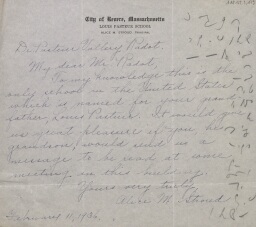 City of Revere, Massachusetts
LOUIS PASTEUR SCHOOL
Dr. Pasteur Vallery Radot,
My dear Mr. Radot,
To my knowledge this is the
only school in the United States
which is named for your grand
father, Louis Pasteur. It would give
us great pleasure if you, his
grandson, would send us a
message to be read at some
meeting in this building.
Yours very truly,
Alice M.
February 11, 1936.